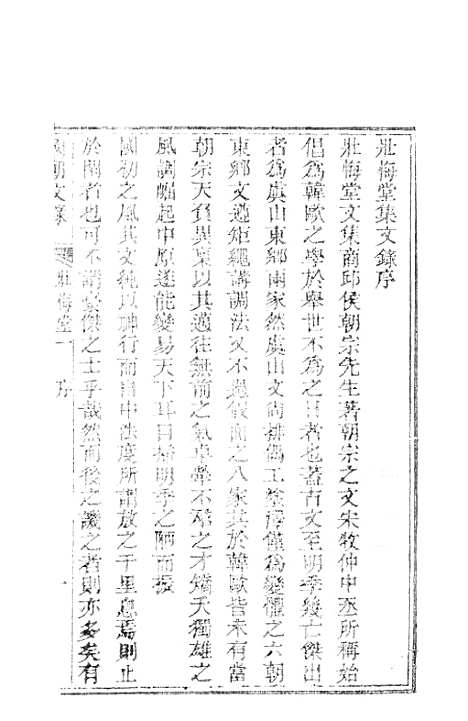 壯悔堂集文錄序
壯悔堂文集商邱侯朝宗先生著朝宗之文宋牧仲中丞所稱始
倡為韓歐之學於舉世不為之日者也蓋古文至明季幾亡傑出
者為虞山東鄉兩家然虞山文尚排偶工塗澤僅為變體之六朝
東鄉文遵矩繩講調法又不過假面之八家其於韓歐皆未有當
朝宗天負異稟以其邁往無前之氣卓犖不羣之才矯天獨雄之
風調崛起中原遂能變易天下耳目掃明季之陋而振
國初之風其文純以神行而自中法度所謂放之千里息焉則止
於閑者也可不謂豪傑之士乎哉然而後之議之者則亦多矣有
國朝文錄 壯悔堂 序 一